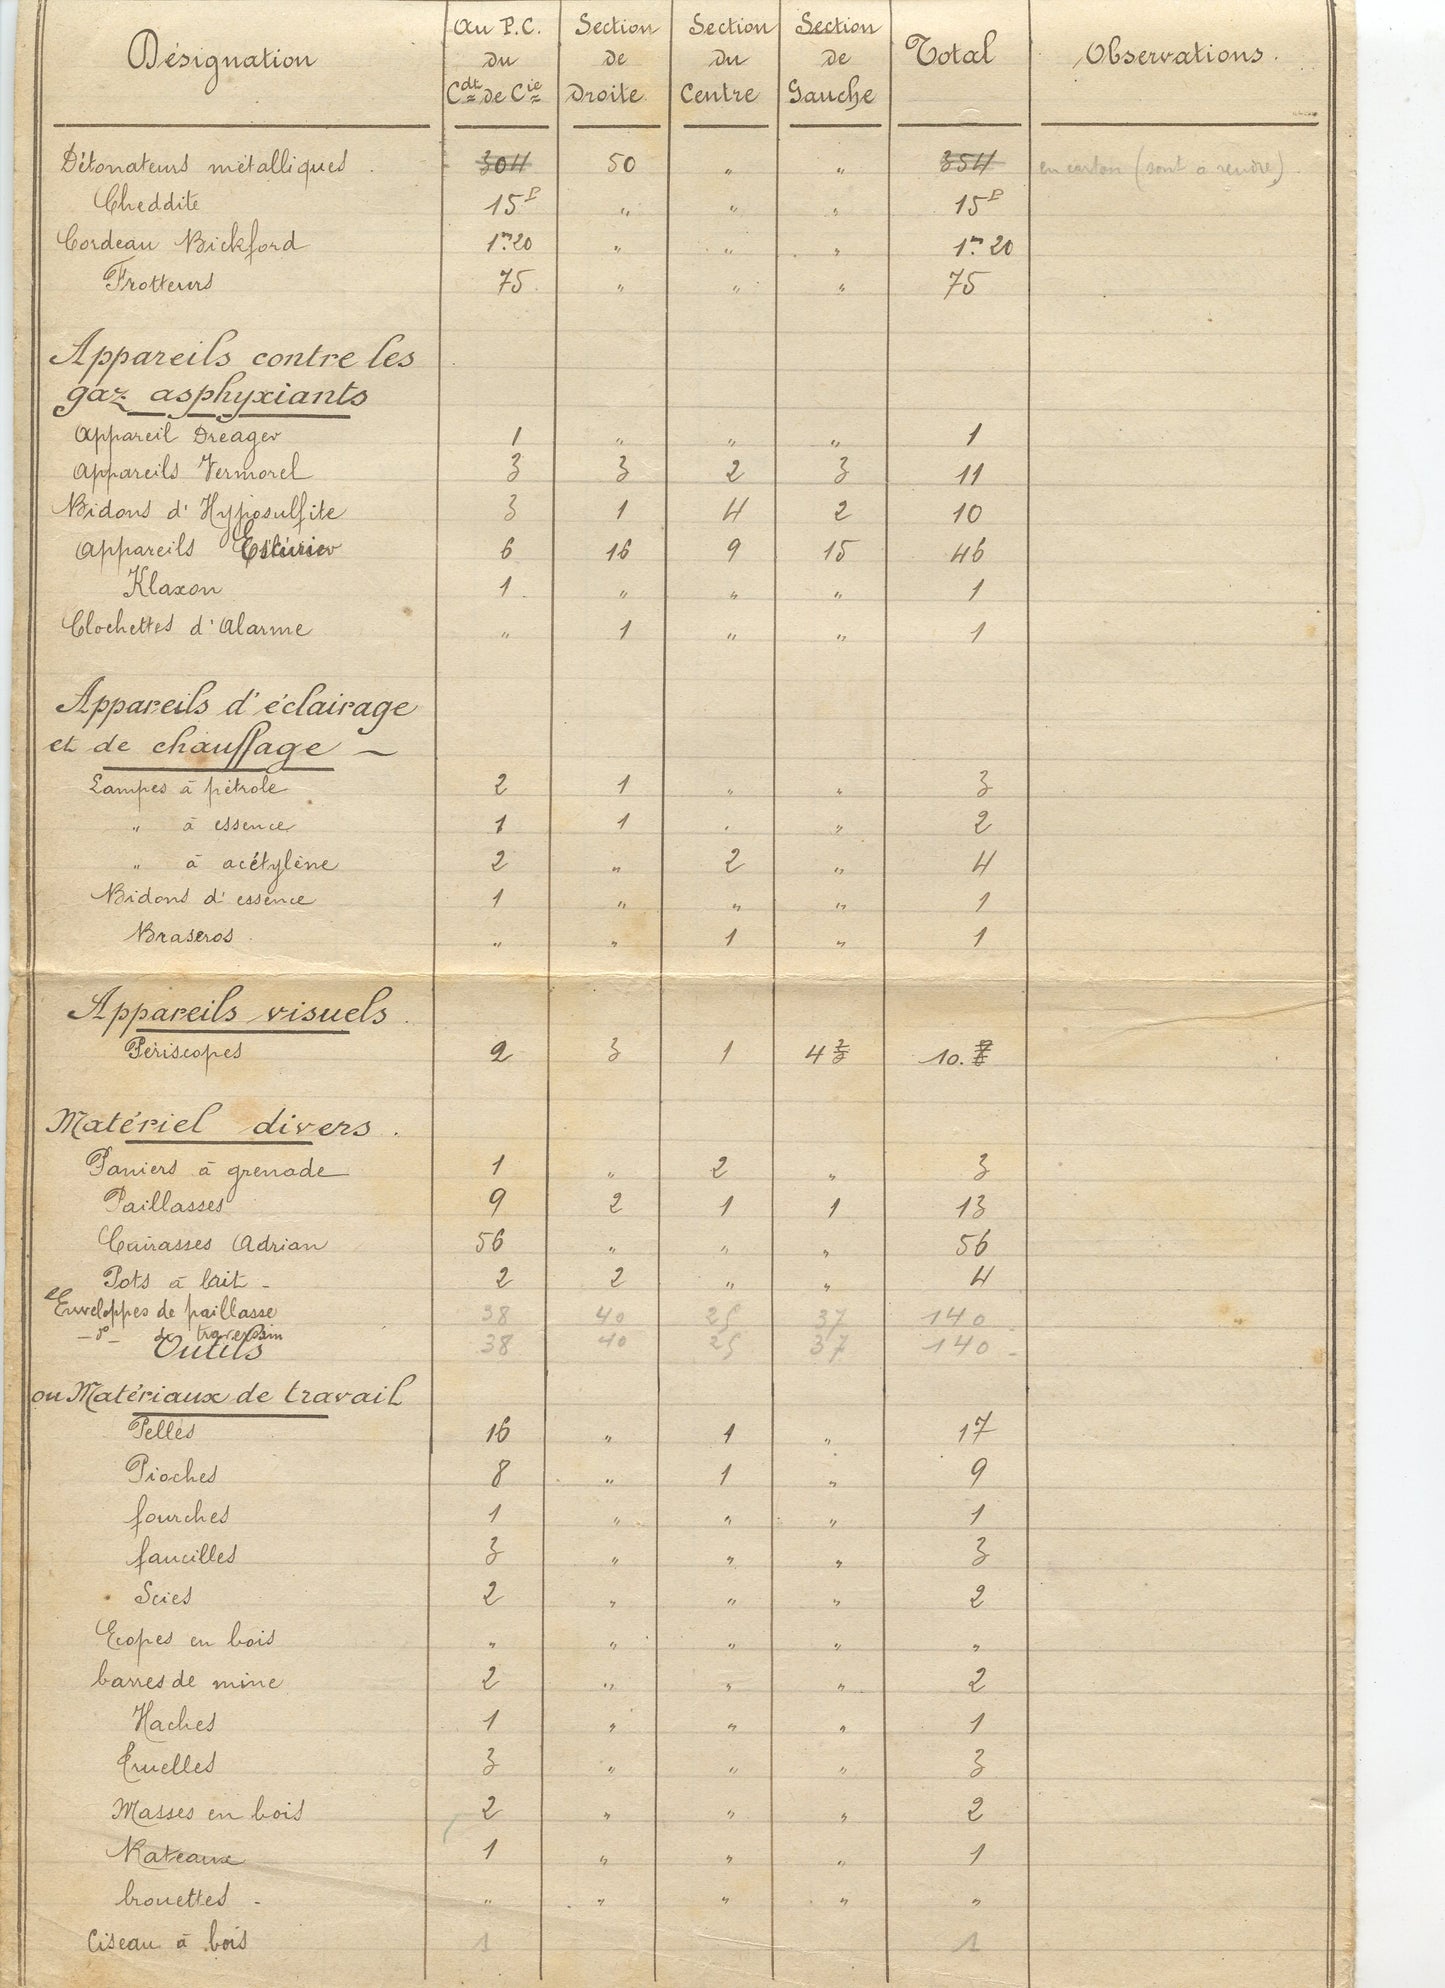 Désignation
Au P.C. du Cdt de Cie
Section de Droite
Section du Centre
Section de Gauche
Total
Observations.
Détonateurs métalliques. 304 50 " " 354 en carton (sont a rendre)
Cheddite 15P " " " 15P
Cordeau Bickford 1m20 " " " 1m20
Frotteurs 75 " " " 75
Appareils contre les
gaz asphyxiants
Appareil Dreager 1 " " " 1
Appareils Vermorel 3 3 2 3 11
Bidons d'Hyposulfite 3 1 4 2 10
Appareils 6 16 9 15 46
Klaxon 1 " " " 1
Clochettes d'Alarme " 1 " " 1
Appareils d'éclairage
et de chauffage
Lampes à pétrole 2 1 " " 3
" à essence 1 1 " " 2
" à acétylène 2 " 2 " 4
Bidons d'essence 1 " " " 1
Braseros. " " 1 " 1
Appareils visuels.
Périscopes 2 3 1 4 10.
Matériel divers.
Paniers à grenade 1 " 2 " 3
Paillasses 9 2 1 1 13
Cuirasses Adrian 56 " " " 56
Pots à lait - 2 2 " " 4
Enveloppes de paillasse 38 40 25 37 140
-do- de traversin 38 40 25 37 140 -
Outils
ou Matériaux de travail
Pelles 16 " 1 " 17
Pioches 8 " 1 " 9
fourches 1 " " " 1
faucilles 3 " " " 3
Scies 2 " " " 2
Ecopes en bois " " " " "
barres de mine 2 " " " 2
Haches 1 " " " 1
Truelles 3 " " " 3
Masses en bois 2 " " " 2
Rateaux 1 " " " 1
brouettes - " " " " "
Ciseau à bois 1 1